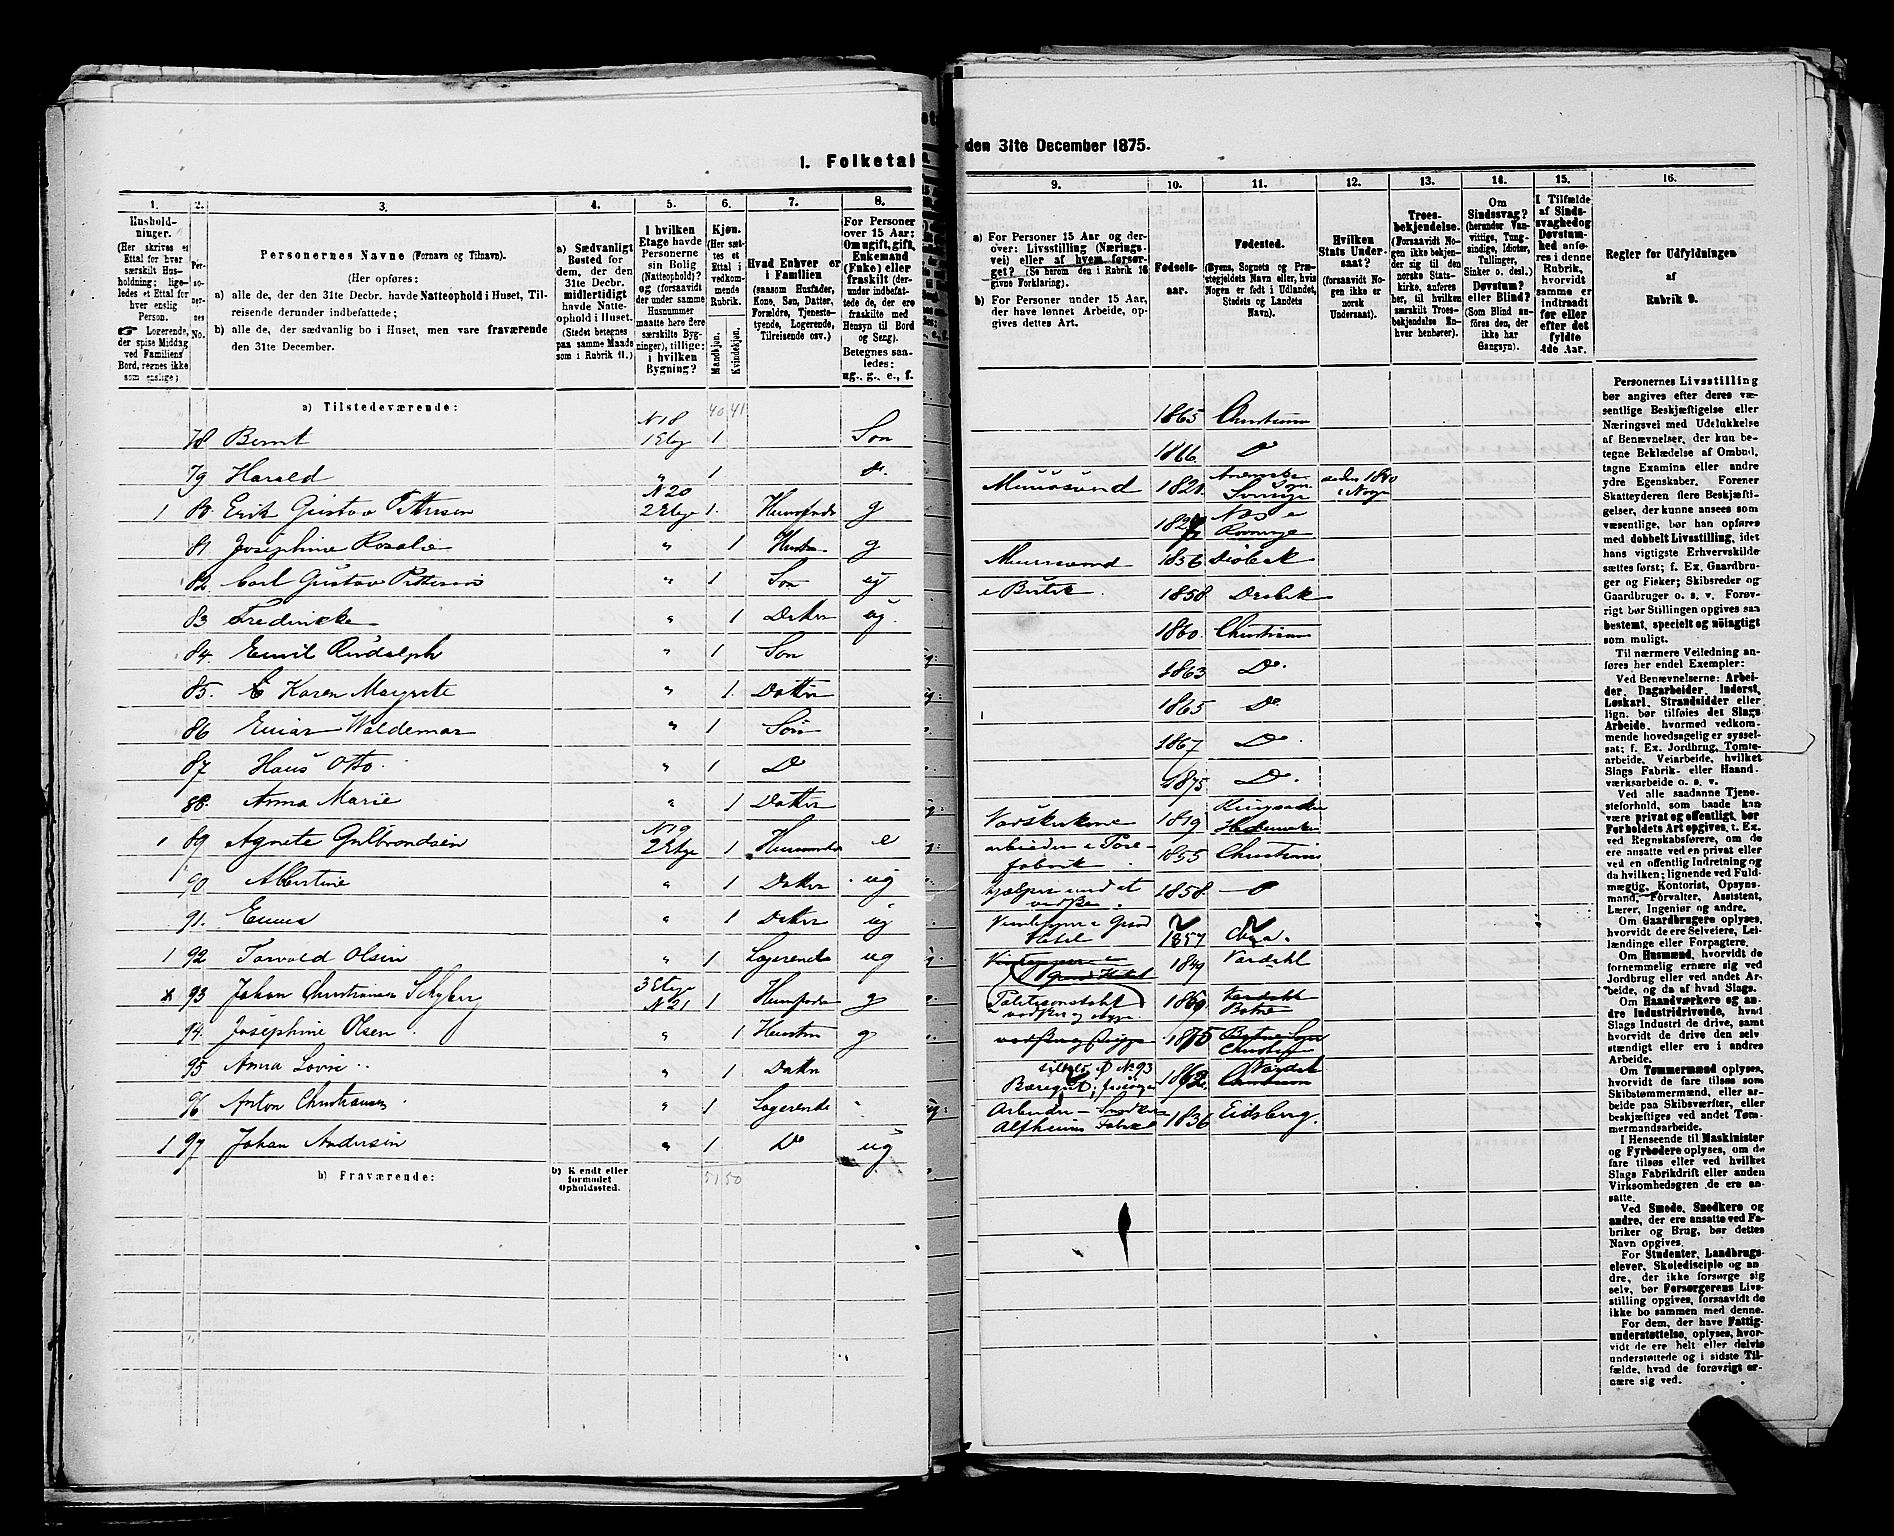 1. Folketal
den 31te December 1875.
1.
Hushold-
ninger.
(Her skrives et
Ettal for hver
særskilt Hus-
holdning; lige-
ledes et Ettal for
hver enslig
Person.
☞ Logerende,
der spise Middag
ved Familiens
Bord, regnes ikke
som enslige.)
2.
Per-
so-
ner-
nes
No.
3.
Personernes Navne (Fornavn og Tilnavn).
(Her opføres:
a) alle de, der den 31te Decbr. havde Natteophold i Huset, Til-
reisende derunder indbefattede;
b) alle de, der sædvanlig bo i Huset, men vare fraværende
den 31te December.
4.
a) Sædvanligt
Bosted for
dem, der den
31te Decbr.
midlertidigt
havde Natte-
ophold i Huset.
(Stedet betegnes
paa samme Maade
som i Rubrik 11.)
5.
I hvilken
Etage havde
Personerne
sin Bolig
(Natteophold)?
og (forsaavidt
der under samme
Husnummer
maatte høre flere
særskilte Byg-
ninger), tillige:
i hvilken
Bygning?
6.
Kjøn.
(Her sæt-
tes et
Ettal i
vedkom-
mende
Rubrik.
Mandkjøn.
Kvindekjøn.
7.
Hvad Enhver er
i Familien
(saasom Husfader,
Kone, Søn, Datter,
Forældre, Tjeneste-
tyende, Logerende,
Tilreisende osv.)
8.
For Personer
over 15 Aar;
Om ugift, gift,
Enkemand
(Enke) eller
fraskilt (der-
under indbefat-
tede de, der ere
fraskilte med
Hensyn til Bord
og Seng).
Betegnes saa-
ledes:
ug., g., e., f.
9.
a) For Personer 15 Aar og der-
over: Livsstilling (Nærings-
vei) eller af hvem forsør-
get? (Se herom den i Rubrik 16
givne Forklaring).
b) For Personer under 15 Aar,
der have lønnet Arbeide, op-
gives dettes Art.
10.
Fødsels-
aar.
11.
Fødested.
(Byens, Sognets og Præ-
stegjeldets Navn eller, hvis
Nogen er født i Udlandet,
Stedets og Landets
Navn).
12.
Hvilken
Stats Under-
saat?
(Forsaavidt No-
gen ikke er
norsk
Undersaat).
13.
Troes-
bekjendelse.
(Forsaavidt No-
gen ikke bekjen-
der sig til den
norske Stats-
kirke, anføres
her, til hvilken
særskilt Troes-
bekjendelse En-
hver henhører).
14.
Om
Sindssvag?
(herunder Van-
vittige, Tung-
sindige, Idioter,
Tullinger,
Sinker o. desl.)
Døvstum?
eller Blind?
(Som Blind an-
føres den, der
ikke har
Gangsyn).
15.
I Tilfælde
af Sinds-
svaghed og
Døvstum-
hed anfø-
res i denne
Rubrik,
hvorvidt
samme er
indtraadt
før eller
efter det
fyldte
4de Aar.
16.
Regler for Udfyldningen
af
Rubrik 9.
a) Tilstedeværende: 40 41
78 Bernt N18 1 Etage 1 Søn 1865 Christiania
79 Harald " 1 d. 1866 D
1 80 Erik Gustav Pettersen N20 2 Etage 1 Huusfader g Muursvend 1821
81 Josephine Rosalie " 1 Hustru g
82 Carl Gustav Pettersen " 1 Søn ug Muursvend 1856 Drøbak
83 Fredrikke " 1 Datter ug i Butik 1858 Drøbak
84 Emil Rudolph " 1 Søn 1860 Christiania
85 Karen Margrete " 1 Datter 1863 D
86 Einar Waldemar " 1 Søn 1865 D
87 Hans Otto " 1 D 1867 D
88 Anna Marie " 1 Datter 1875 D
1 89 Agnete Gulbrandsen N19 2 Etage 1 e Vaskekone 1819 Ringsaker Hedemarken
90 Albertine " 1 Datter ug 1855 Christiania
91 Emma " 1 Datter ug 1858 D
1 92 Torvald Olsen " 1 Logerende ug Grand Hotel 1857
93 Johan Christiansen Schyberg 3 Etage N21 1 Huusfader g 1849 Vardahl
94 Josephine Olsen " 1 Hustru g
95 Anna Lovise " 1 Datter 1875
96 Anton Christiansen " 1 Logerende 1862 Vardahl
1 97 Johan Andersen " 1 D ug Arbeider Snedker Alfheims Fabrik 1836 Eidsberg
b) Fraværende:
b) Kjendt eller
formodet
Opholdssted.
51 50
Personernes Livsstilling
bør angives efter deres væ-
sentlige Beskjæftigelse eller
Næringsvei med Udelukkelse
af Benævnelser, der kun be-
tegne Beklædelse af Ombud,
tagne Examina eller andre
ydre Egenskaber. Forener
Skatteyderen flere Beskjæfti-
gelser, der kunne ansees som
væsentlige, bør han opføres
med dobbelt Livsstilling, idet
hans vigtigste Erhvervskilde
sættes først; f. Ex. Gaardbru-
ger og Fisker; Skibsreder og
Gaardbruger o. s. v. Forøv-
rigt bør Stillingen opgives saa
bestemt, specielt og nøiagtigt
som muligt.
Til nærmere Veiledning an-
føres her endel Exempler:
Ved Benævnelserne: Arbei-
der, Dagarbeider, Inderst,
Løskarl, Strandsidder eller
lign. bør tilføies det Slags
Arbeide, hvormed vedkom-
mende hovedsagelig er syssel-
sat; f. Ex. Jordbrug, Tomte-
arbeide, Veiarbeide, hvilket
Slags Fabrik- eller Haand-
værksarbeide o. s. v.
Ved alle saadanne Tjene-
steforhold, som baade kan
være privat og offentligt, bør
Forholdets Art opgives, t. Ex.
ved Regnskabsførere, om de
ere ansatte ved en privat eller
ved en offentlig Indretning og
da hvilken; lignende ved Fuld-
mægtig, Kontorist, Opsyns-
mand, Forvalter, Assistent,
Lærer, Ingeniør og andre.
Om Gaardbrugere oplyses,
hvorvidt de ere Selveiere, Lei-
lændinge eller Forpagtere.
Om Husmænd, hvorvidt de
fornemmelig ernære sig ved
Jordbrug eller ved andet Ar-
beide, og da af hvad Slags.
Om Haandværkere og an-
dre Industridrivende, hvad
Slags Industri de drive, samt
hvorvidt de drive den selv-
stændigt eller ere i andres
Arbeide.
Om Tømmermænd oplyses,
hvorvidt de fare tilsøs som
Skibstømmermænd, eller ar-
beide paa Skibsværfter, eller
beskjæftiges ved andet Tøm-
mermandsarbeide.
I Henseende til Maskinister
og Fyrbødere oplyses, om de
fare tilsøs eller ved hvilket
Slags Fabrikdrift eller anden
Virksomhedsgren de ere an-
satte.
Ved Smede, Snedkere og
andre, der ere ansatte ved Fa-
briker og Brug, bør dettes
Navn opgives.
For Studenter, Landbrugs-
elever, Skoledisciple og an-
dre, der ikke forsørge sig
selv, bør Forsørgerens Livs-
stilling opgives, forsaavidt de
ikke bo sammen med denne.
For dem, der have Fattig-
understøttelse, oplyses, hvor-
vidt de ere helt eller delvis
understøttede og i sidste Til-
fælde, hvad de forøvrigt er-
nære sig ved.